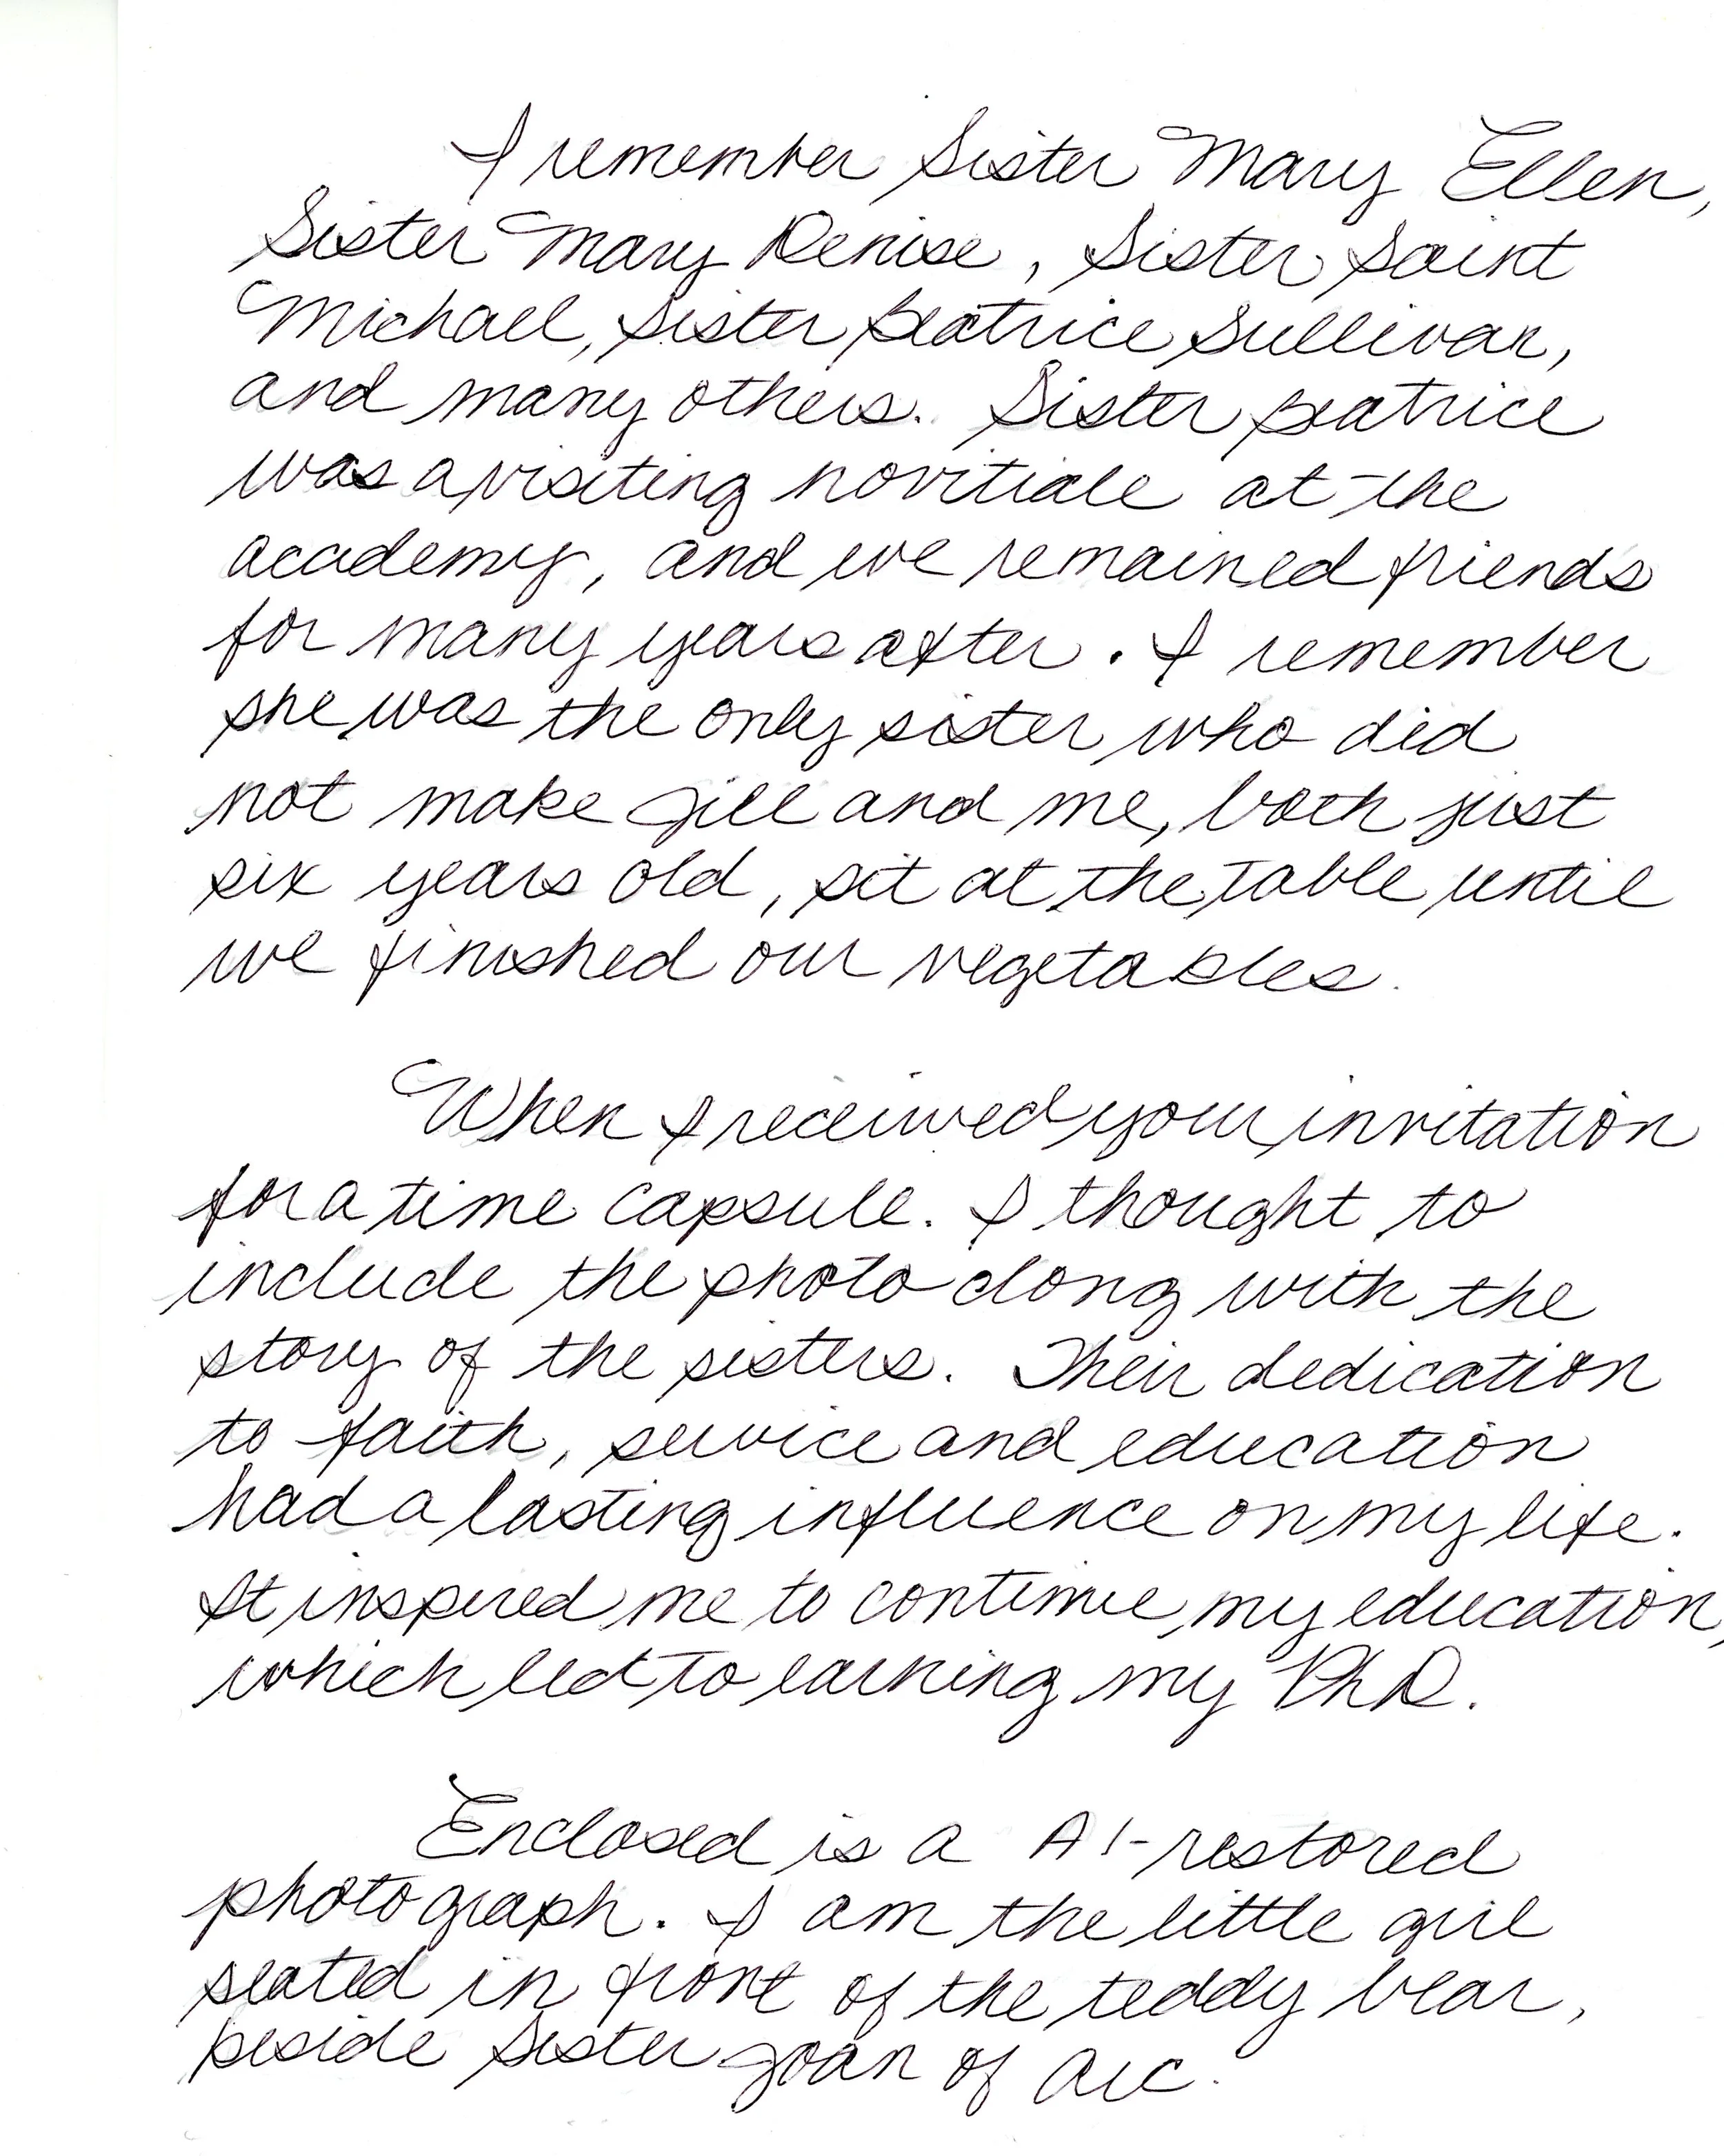 I remember Sister Mary Ellen,
Sister Mary Denise, Sister Saint
Michael, Sister Beatrice Sullivan,
and many others. Sister Beatrice
was a visiting novitiate at the
academy, and we remained friends
for many years after. I remember
she was the only sister who did
not make Jill and me, both just
six years old, sit at the table until
we finished our vegetables.
When I received your invitation
for a time capsule. I thought to
include the photo along with the
story of the sisters. Their dedication
to faith, service and education
had a lasting influence on my life.
It inspired me to continue my education,
which led to earning my PhD.
Enclosed is a AI-restored
photograph. I am the little girl
seated in front of the teddy bear,
beside Sister Joan of Arc.